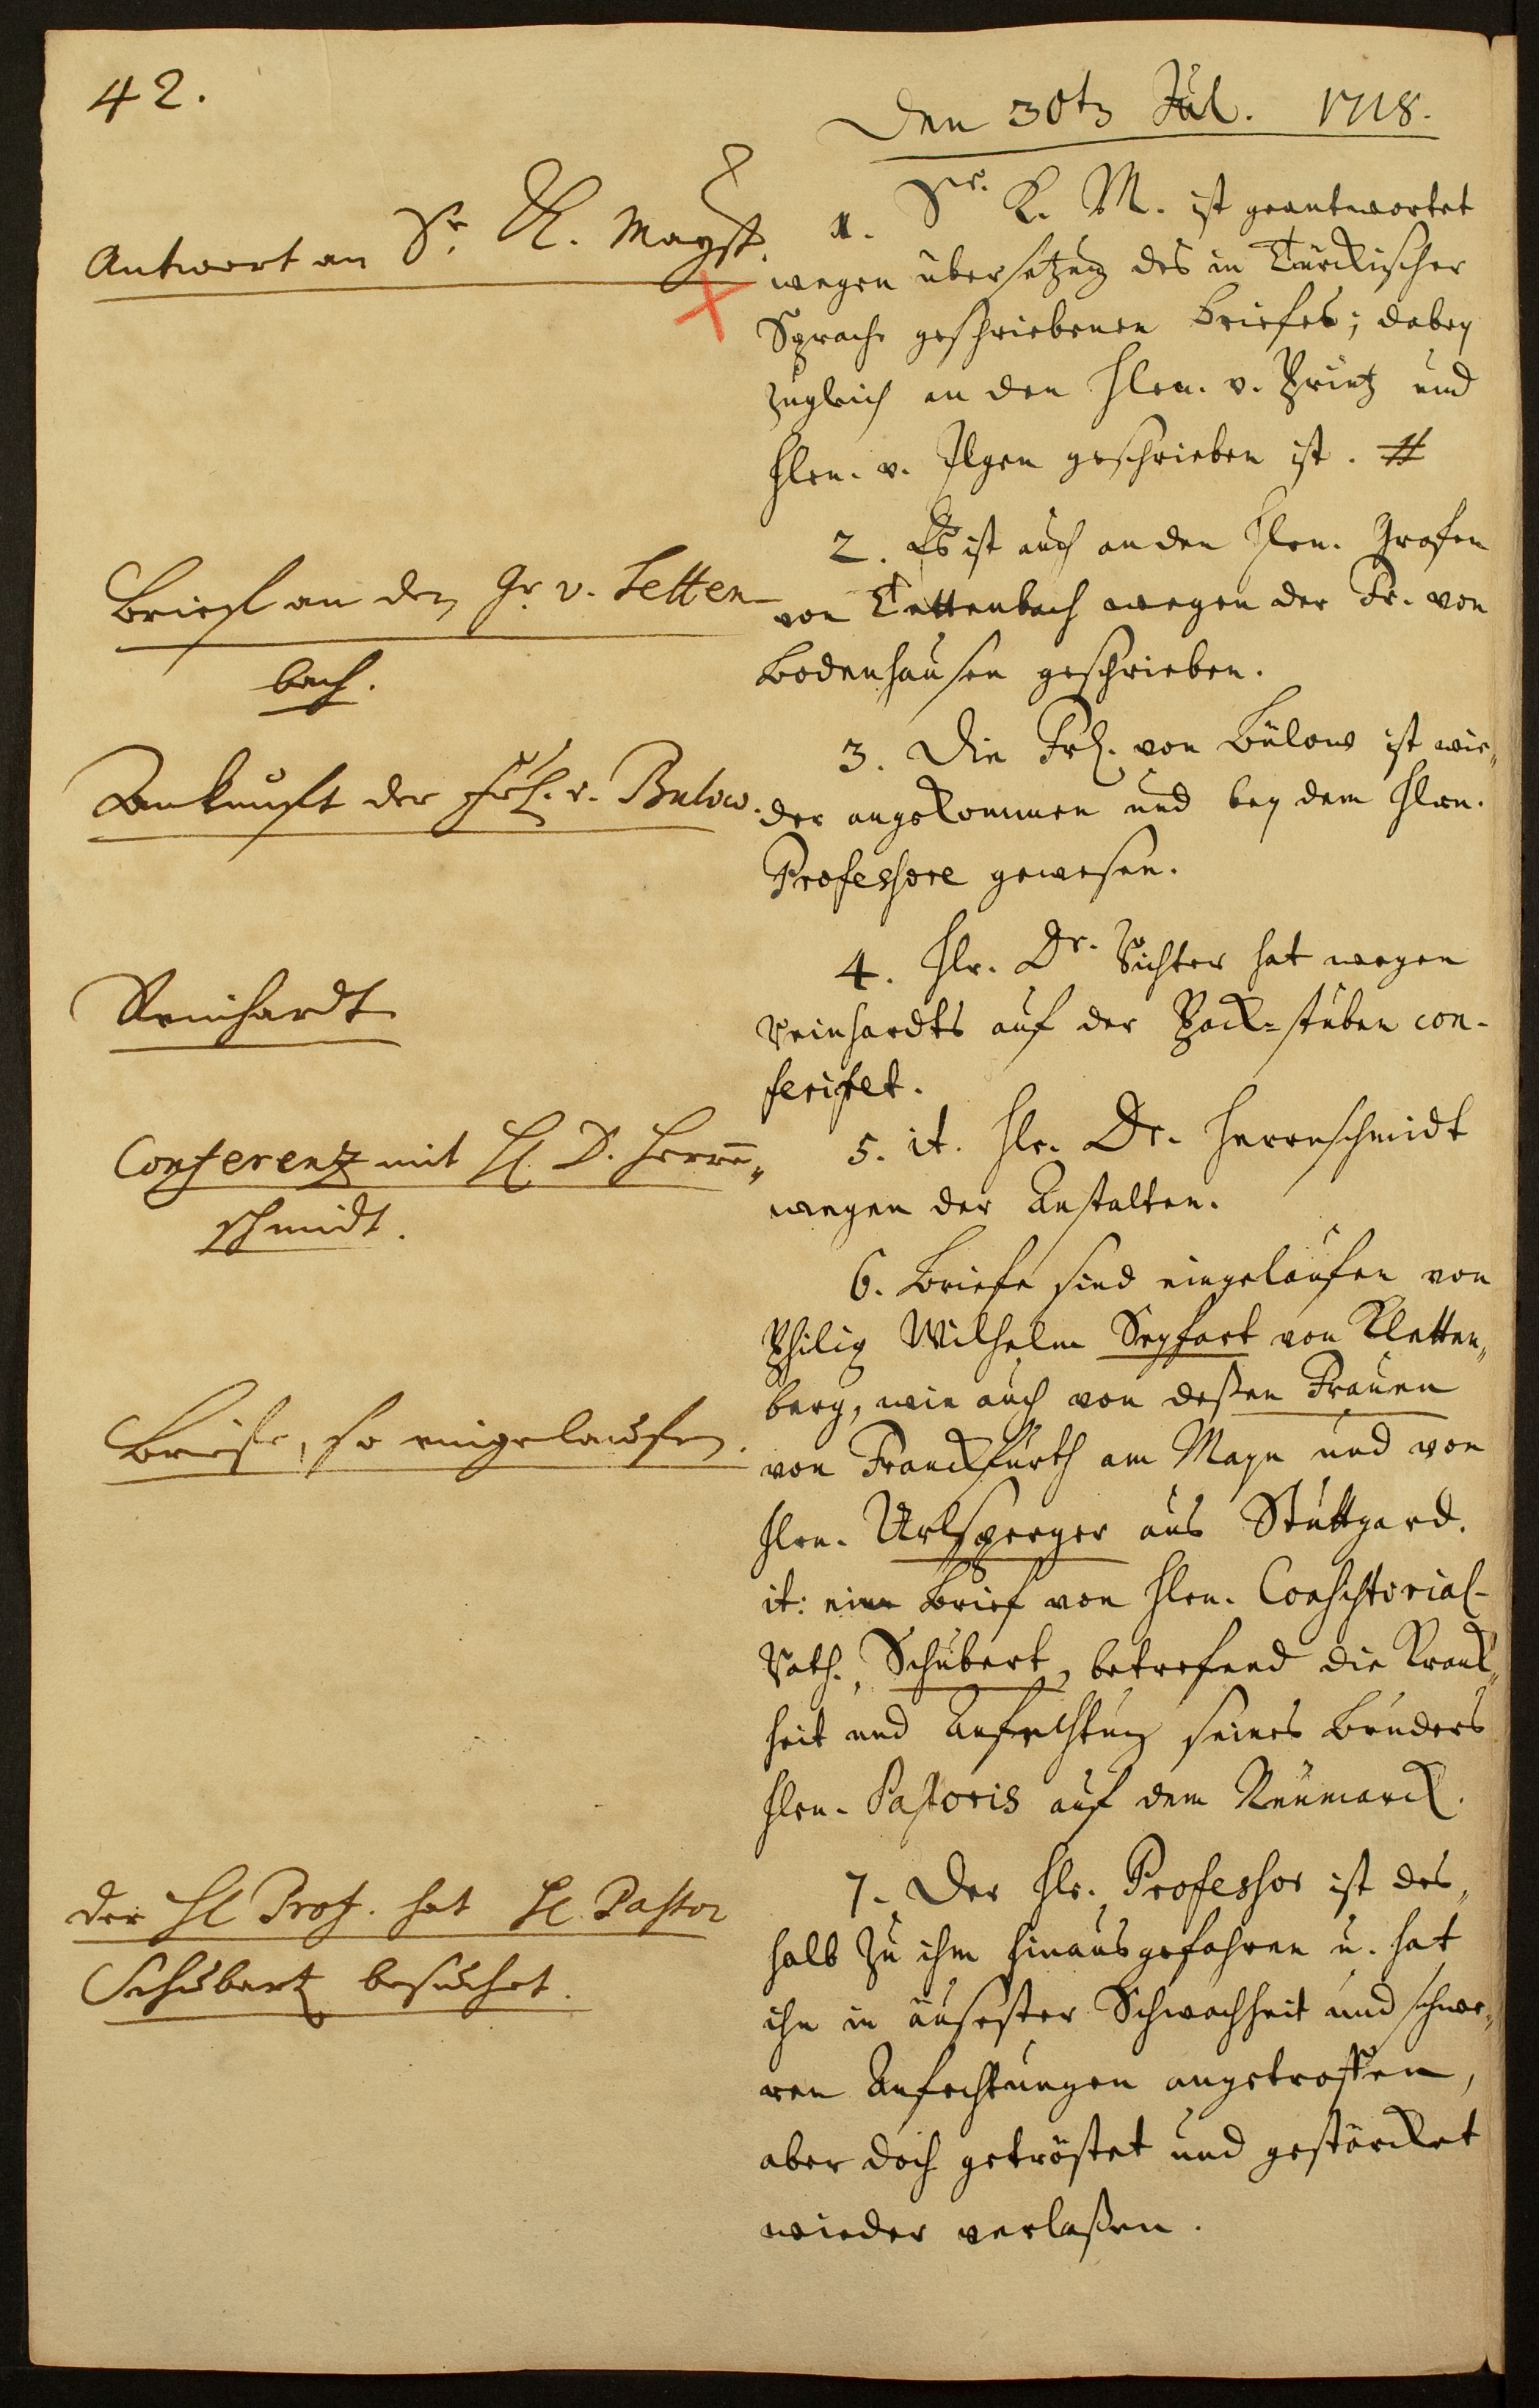 42.
Den 30t Jul. 1718.
Antwort an Sr. K. Mayst.
1. Sr. K. M. ist geantwortet
wegen übersetzung des in Türckischer
Sprache geschriebenen Briefes; dabey
zugleich an den Hrn. v. Printz und
Hrn. v. Ilgen geschrieben ist. #
Brief an den Gr. v. Tetten-
bach.
2. Es ist auch an den Hrn. Grafen
von Tettenbach wegen der Fr. von
Bodenhausen geschrieben.
Ankunft der Frl. v. Bulow.
3. Die Frl. von Bülow ist wie„
der angekommen und bey dem Hrn.
Professore gewesen.
Reinhardt
4. Hr. Dr. Richter hat wegen
Reinhardts auf der Pack-stuben con-
feriret.
Conferentz mit H. D. Herrn„
schmidt.
5. it. Hr. Dr. Herrnschmidt
wegen der Anstalten.
Briefe, so eingelaufen.
6. Briefe sind eingelaufen von
Philip Wilhelm Seyfart von Kletten„
berg, wie auch von deßen Frauen
von Franckfurth am Mayn und von
Hrn. Urlsperger aus Stuttgard.
it: ein Brief von Hrn. Consistorial-
Rath. Schubert, betrefend die Kranck„
heit und Anfechtung seines Bruders
Hrn. Pastoris auf dem Neumarck.
der H Prof. hat H. Pastor
Schubart besuchet.
7. Der Hr. Professor ist des„
halb zu ihm hinausgefahren u. hat
ihn in äusester Schwachheit und schwe„
ren Anfechtungen angetroffen,
aber doch getröstet und gestärcket
wieder verlaßen.